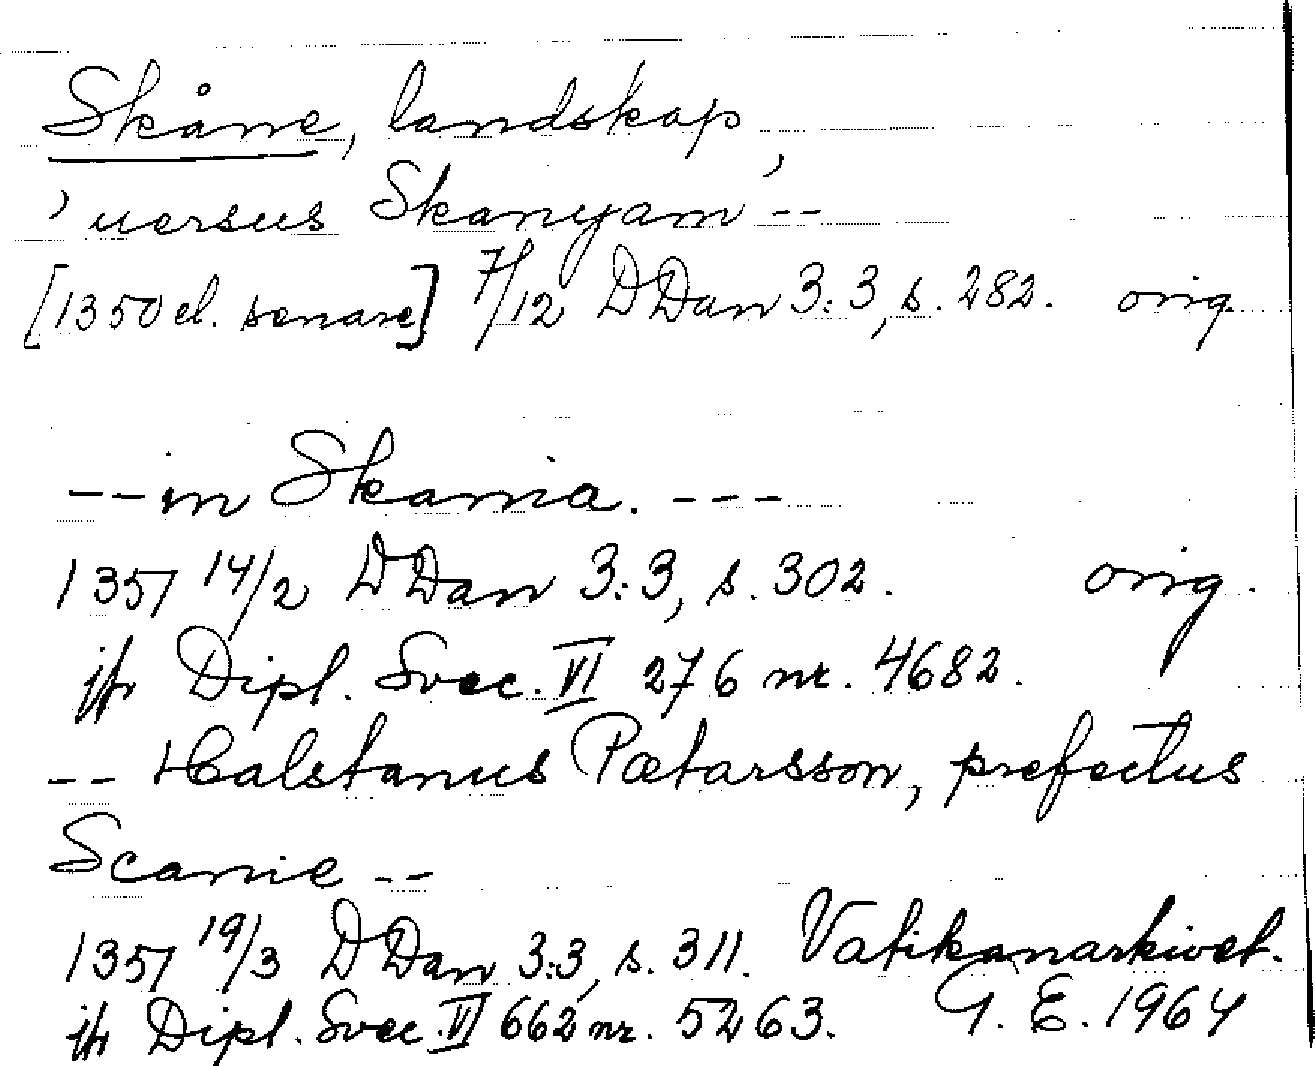 Skåne, landskap,
, uersus Skanyam --
[1350 el. senare] 7/12 DDan 3:3, s. 282. orig.
-- in Skania. ---
1351 14/2 DDan 3:3, s. 302. orig.
jfr Dipl. Svec. VI 276 nr. 4682.
-- Halstanus Pætarsson, prefectus
Scanie --
1351 19/3 DDan 3:3, s. 311. Vatikanarkivet.
jfr Dipl. Svec. VI 662 nr. 5263. G. E. 1964